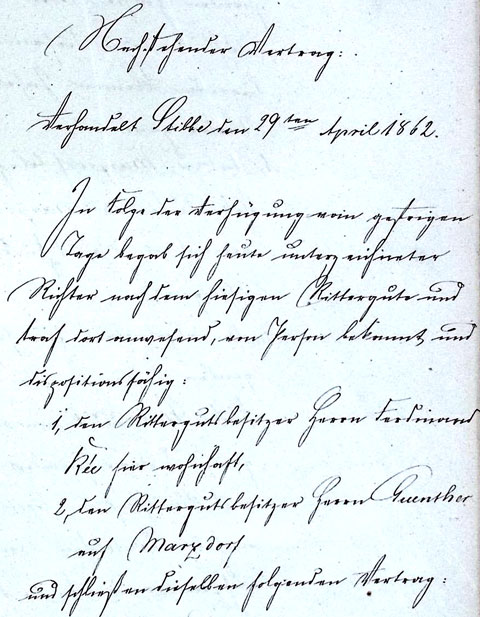 Nachstehender Vertrag:
Verhandelt Stibbe den 29ten April 1862.
In Folge der Verfügung vom gestrigen
Tage begab sich heute unterzeichneter
Richter nach dem hiesigen Rittergute und
traf dort anwesend, von Person bekannt und
dispositionsfähig:
1, den Rittergutsbesitzer Herrn Ferdinand
Rée hier wohnhaft,
2, den Rittergutsbesitzer Herrn Guenther
auf Marzdorf
und schließen dieselben folgenden Vertrag: